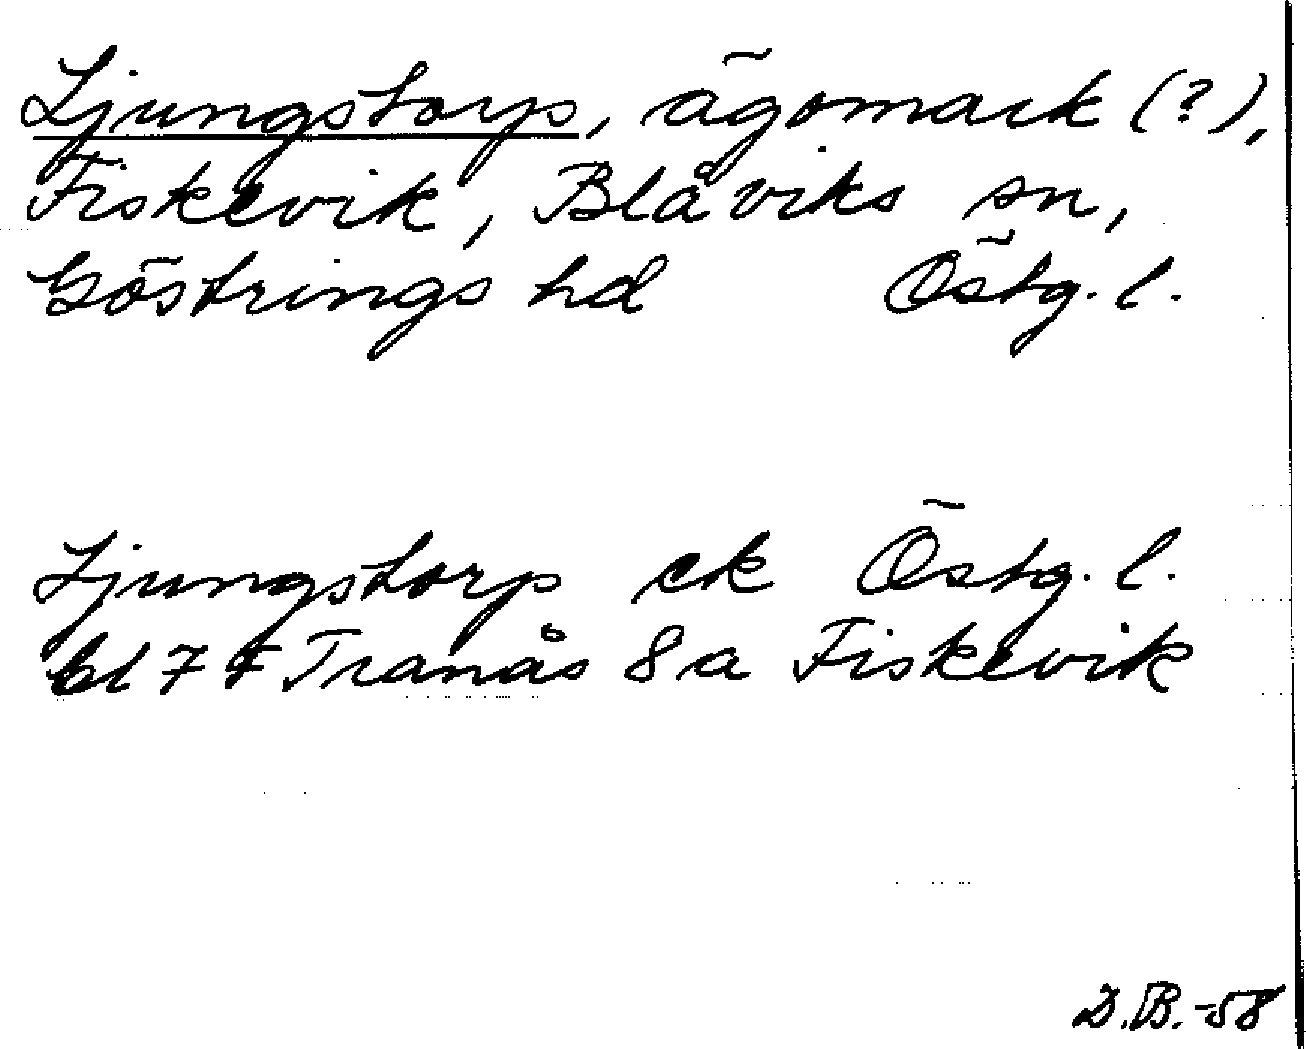 Ljungstorp, ägomark (?),
Fiskevik, Blåviks sn,
Göstrings hd Östg. l.
Ljungstorp ek Östg. l.
bl 7 F Tranås 8a Fiskevik
D.B. -58